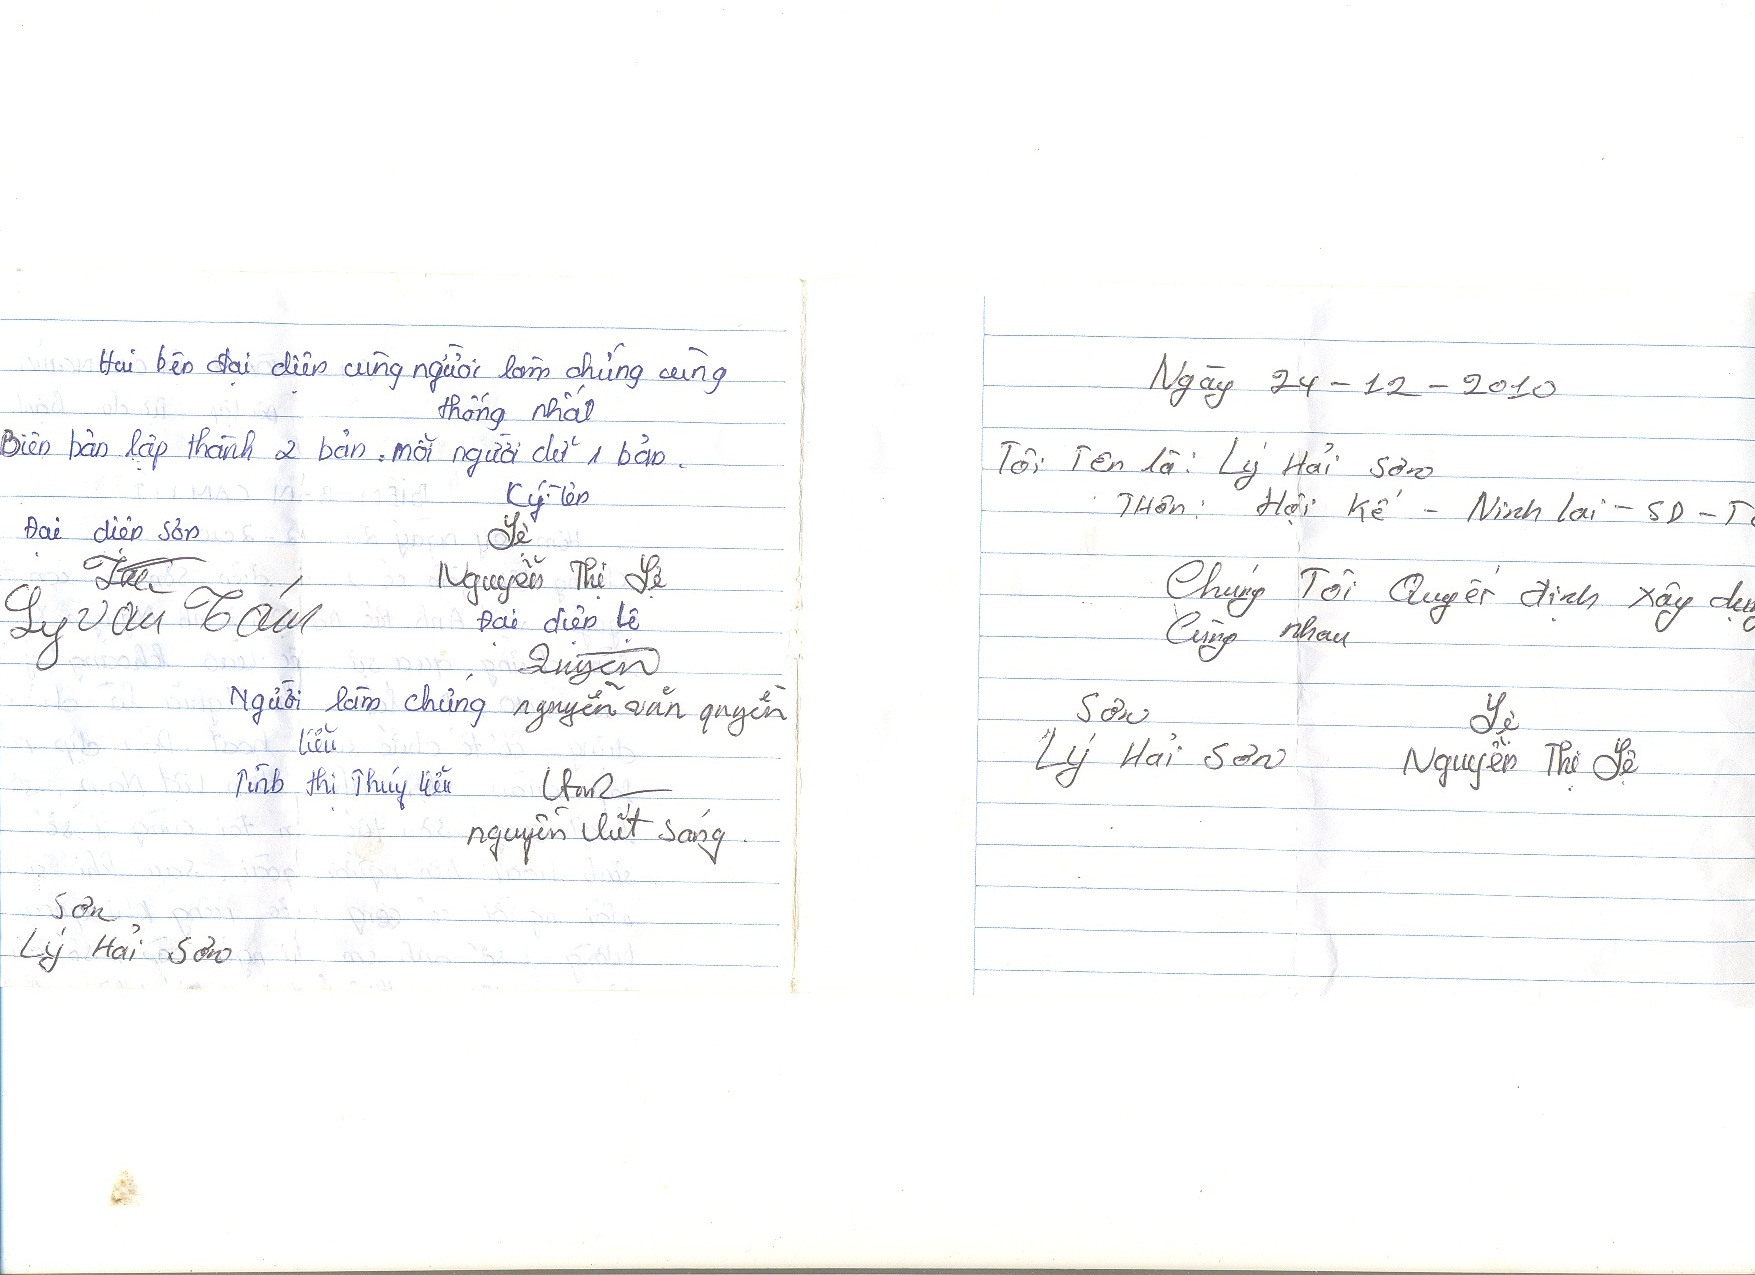 Hai bên đại diện cùng người làm chứng cùng
thống nhất
Biên bản lập thành 2 bản. mỗi người dữ 1 bản.
Ký tên
Đại diện sơn
Lệ
Nguyễn Thị Lệ
Lý văn Tám
Đại diện Lệ
Quyền
Người làm chứng nguyễn văn quyền
liễu
Tinh thi Thúy liễu
nguyễn viết sáng.
Sơn
Lý Hải Sơn
Ngày 24-12-2010
Tôi Tên là: Lý Hải Sơn
Thôn: Hội Kế - Ninh lai - SD - T
Chúng Tôi Quyết định xây dựng
Cùng nhau
Sơn
Lệ
Lý Hải Sơn
Nguyễn Thị Lệ